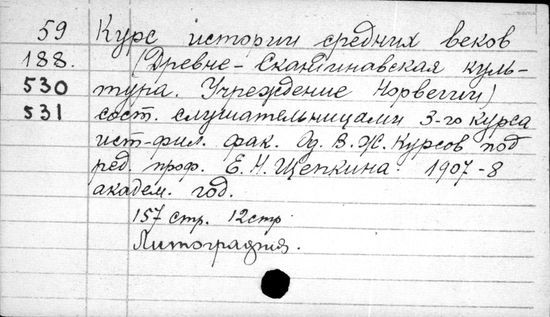 59 Курс истории средних веков
188. (Древне-Скандинавская куль-
530 тура. Учреждение Норвегии)
531 сост. слушательницами 3-го курса
ист-фил. фак. Од. В. Ж. Курсов под
ред. проф. Е. Н. Щепкина. 1907-8
академ. год.
157 стр. 12 стр
Литография.